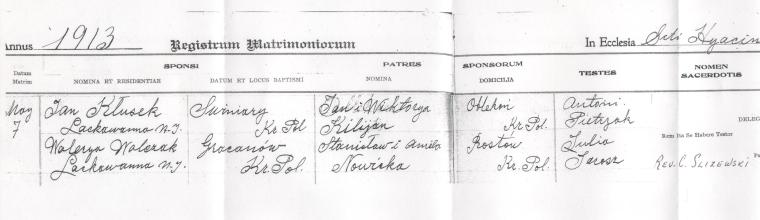 Annus 1913 Registrum Matrimoniorum In Ecclesia Sti Hyacin
SPONSI PATRES SPONSORUM NOMEN
Datum Matrim NOMINA ET RESIDENTIAE DATUM ET LOCUS BAPTISMI NOMINA DOMICILIA TESTES SACERDOTIS
May Jan Klusek Suminary Jan i Wiktorya Oblekon Antoni
7 Lackawanna N.Y. Kr Pol Kilijan Kr. Pol. Pietrzak DELEG
Walerya Walczak Gracanów Stanisław i Amelia Rostow Julia Rem Ita Se Habere Testor
Lackawanna N.Y. Kr. Pol. Nowicka Kr. Pol. Jarosz REV. C. SLIZEWSKI Pa